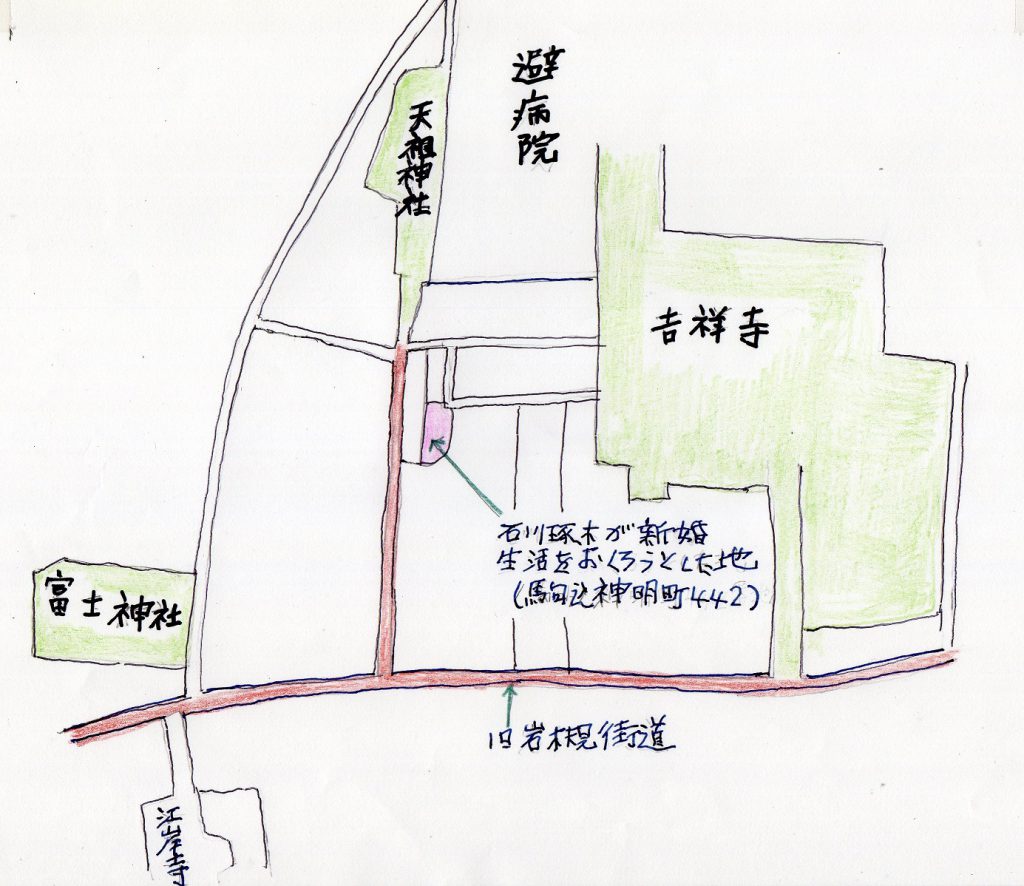 避病院
天祖神社
吉祥寺
石川琢木が新婚
生活をおくろうとした地
(駒込神明町442)
富士神社
旧岩槻街道
江岸寺